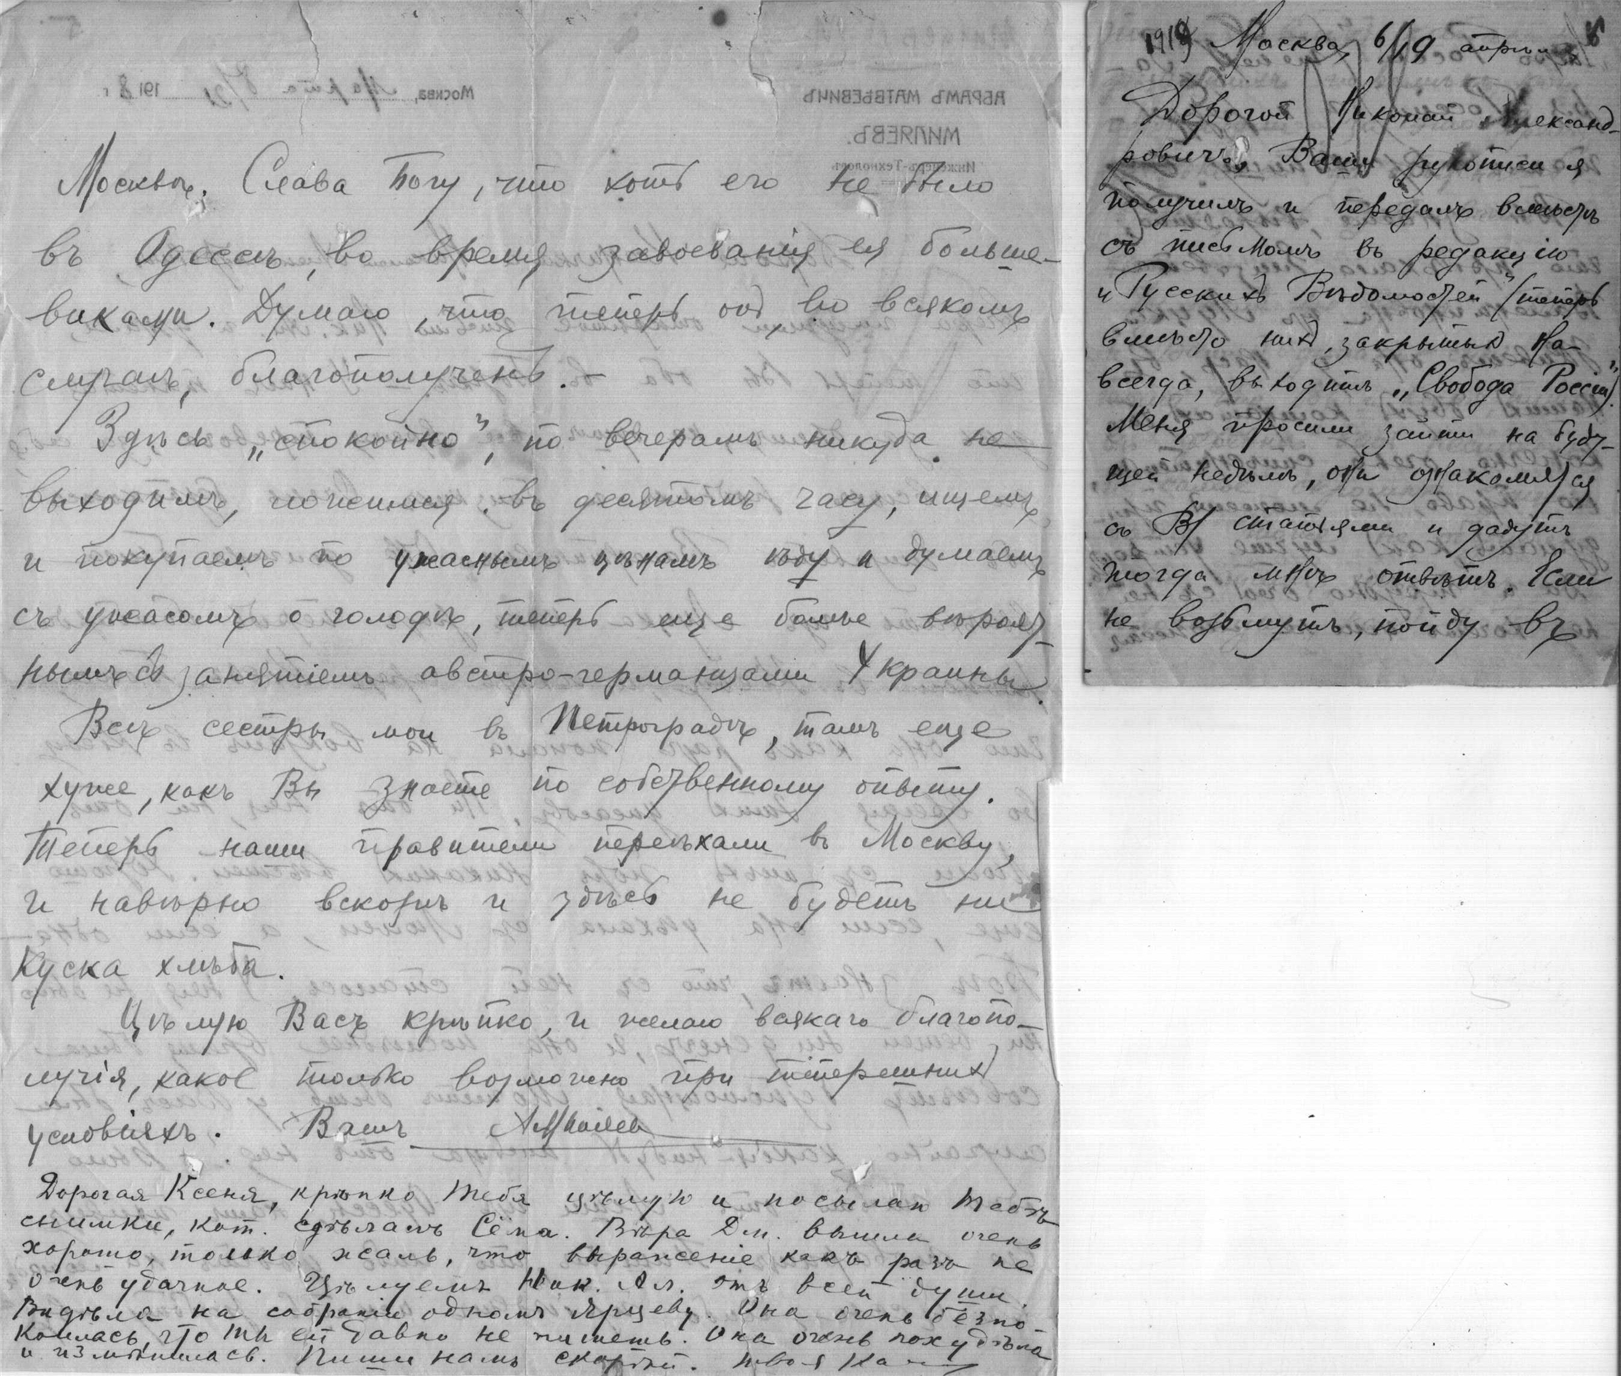 Москвы. Слава Богу, что хоть его не было
въ Одессѣ, во время завоеванія ея больше-
виками. Думаю, что теперь он, во всякомъ
случаѣ, благополученъ.
Здѣсь „спокойно”, по вечерамъ никуда не
выходимъ, ложимся въ десятомъ часу, ищемъ
и покупаемъ по ужаснымъ цѣнамъ ѣду и думаемъ
съ ужасомъ о голодѣ, теперь еще болѣе вѣроят-
нымъ съ занятіемъ австро-германцами Украины
Всѣ сестры мои въ Петроградѣ, тамъ еще
хуже, какъ Вы знаете по собственному опыту.
Теперь наши правители переѣхали въ Москву,
и навѣрно вскорѣ и здѣсь не будетъ ни
куска хлѣба.
Цѣлую Васъ крѣпко, и желаю всякаго благопо-
лучія, какое только возможно при теперешних
условіяхъ. Вашъ АМиляев
Дорогая Ксеня, крѣпко тебя цѣлую и посылаю тебѣ
снимки, кот. сдѣлалъ Сёма. Вѣра Дм. вышла очень
хорошо, только жаль, что выраженіе какъ разъ не
очень удачное. Цѣлуемъ Ник. Ал. отъ всей души.
Видѣла на собраніи одномъ Ярцеву. Она очень безпо-
коилась, что ты ей давно не пишешь. Она очень похудѣла
и измѣнилась. Пиши намъ скорѣй. Твоя
АБРАМЪ МАТВѢЕВИЧЪ
МИЛЯЕВЪ.
Инженеръ-Технологъ
Москва, Марта 8/21 1918 г.
1918 Москва, 6/19 апрѣля
Дорогой Николай Александ-
ровичъ, Ваши рукописи я
получилъ и передалъ вмѣстѣ
съ письмомъ въ редакцію
„Русских Вѣдомостей” (теперь
вмѣсто них, закрытых на-
всегда, выходитъ „Свобода Россіи”).
Меня просили зайти на буду-
щей недѣлѣ, они ознакомятся
съ В/ статьями и дадутъ
тогда мнѣ отвѣтъ. Если
не возьмутъ, пойду въ